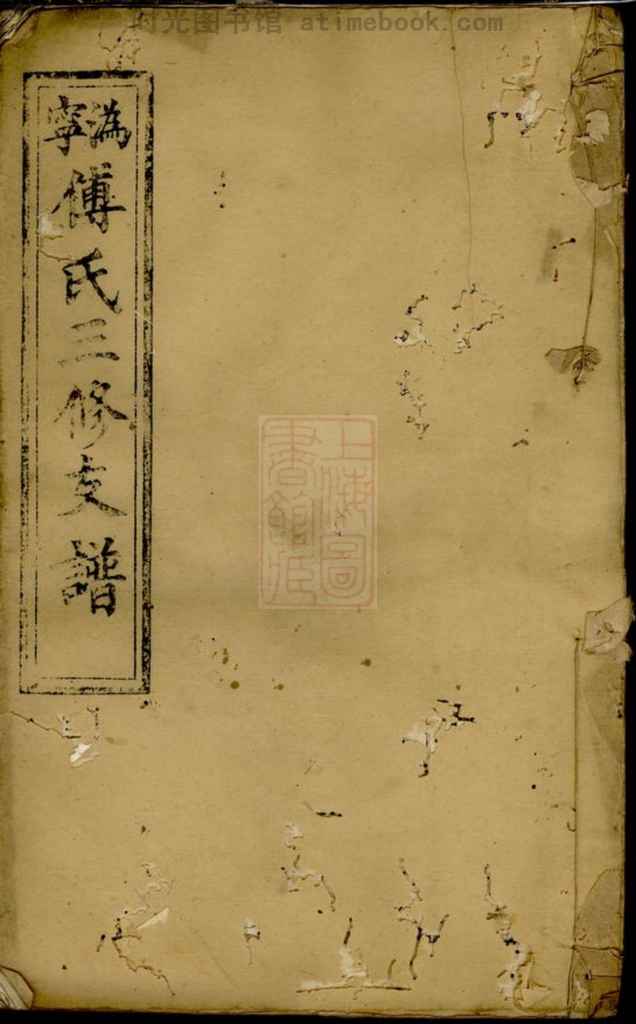 时光图书馆 atimebook.com
溈寧傅氏三修支譜
上海圖書館藏